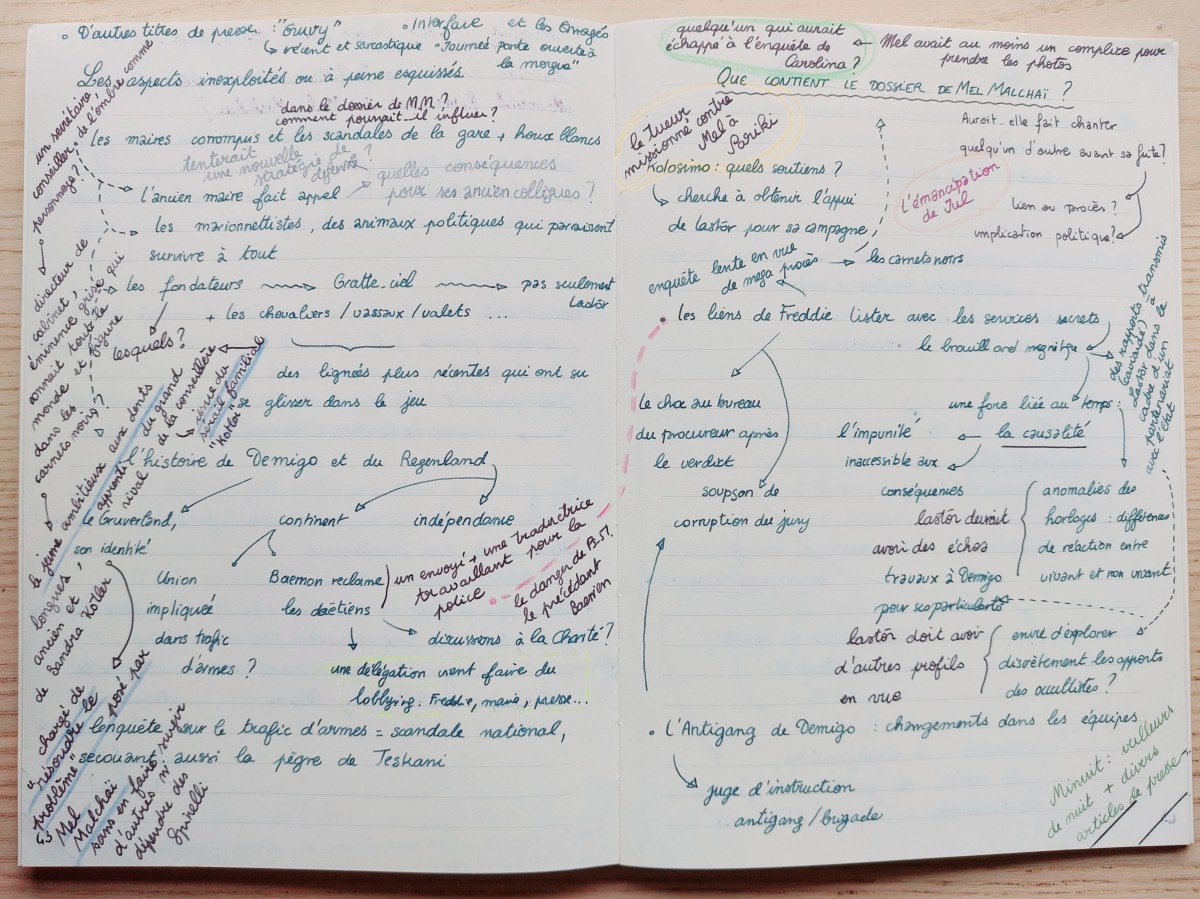 • D'autres titres de presse : "Gruvy"
↳ récent et sarcastique
• Interface et les Omagés
"Journée porte ouverte à
la morgue"
Les aspects inexploités ou à peine esquissés.
dans le dossier de M.M. ?
comment pourrait-il influer ?
les maires corrompus et les scandales de la gare + houx blancs
tenterait
une nouvelle
stratégie de
défense ?
quelles conséquences
pour ses anciens collègues ?
l'ancien maire fait appel
les marionnettistes, des animaux politiques qui paraissent
survivre à tout
les fondateurs
Gratte-ciel
pas seulement
Lastor
+ les chevaliers / vassaux / valets ...
lesquels ?
des lignées plus récentes qui ont su
se glisser dans le jeu
l'histoire de Demigo et du Regenland
le Gruverland,
son identité
continent
indépendance
Union
impliquée
dans trafic
d'armes ?
Baemon réclame
les daëtiens
un envoyé + une traductrice
travaillant pour la
police
le danger de B.M.
le précédant
Baenien
discussions à la Charité ?
une délégation vient faire du
lobbying : Freddie, mairie, presse...
l'enquête sur le trafic d'armes = scandale national,
secouant aussi la pègre de Teskani
un secrétaire,
conseiller de l'ombre comme
personnage ?
directeur de
cabinet,
éminence grise qui
connait tout le
monde et figure
dans les
carnets noirs ?
le jeune ambitieux aux dents
longues,
apprenti du grand
rival
de la conseillère
issue du
"Kotler"
ancien et
de Sandra Kotler
chargé de
"résoudre le
problème" posé par
Mel
Malchaï
sans en faire surgir
d'autres ni
dépendre des
Spinelli
quelqu'un qui aurait
échappé à l'enquête de
Carolina ?
Mel avait au moins un complice pour
prendre les photos
QUE CONTIENT LE DOSSIER DE MEL MALCHAÏ ?
le tueur
missionné contre
Mel à
Boriki
Aurait-elle fait chanter
quelqu'un d'autre avant sa fuite ?
lien au procès ?
implication politique ?
L'émancipation
de Jul
Kolosimo : quels soutiens ?
cherche à obtenir l'appui
de Lastor pour sa campagne
enquête lente en vue
de méga procès
les carnets noirs
• les liens de Freddie Lister avec les services secrets
le brouillard magnétique
des rapports transmis
(caviardés) à
Lastor dans le
cadre d'un
partenariat
avec l'état
le choc au bureau
du procureur après
le verdict
soupçon de
corruption du jury
une force liée au temps :
la causalité
l'impunité
inaccessible aux
conséquences
Lastor devrait
avoir des échos
travaux à Demigo
pour ses particularités
anomalies des
horloges : différences
de réaction entre
vivant et non vivant
Lastor doit avoir
d'autres profils
en vue
envie d'explorer
discrètement les apports
des occultistes ?
• L'Antigang de Demigo : changements dans les équipes
juge d'instruction
antigang / brigade
Minuit : veilleurs
de nuit + divers
articles de presse